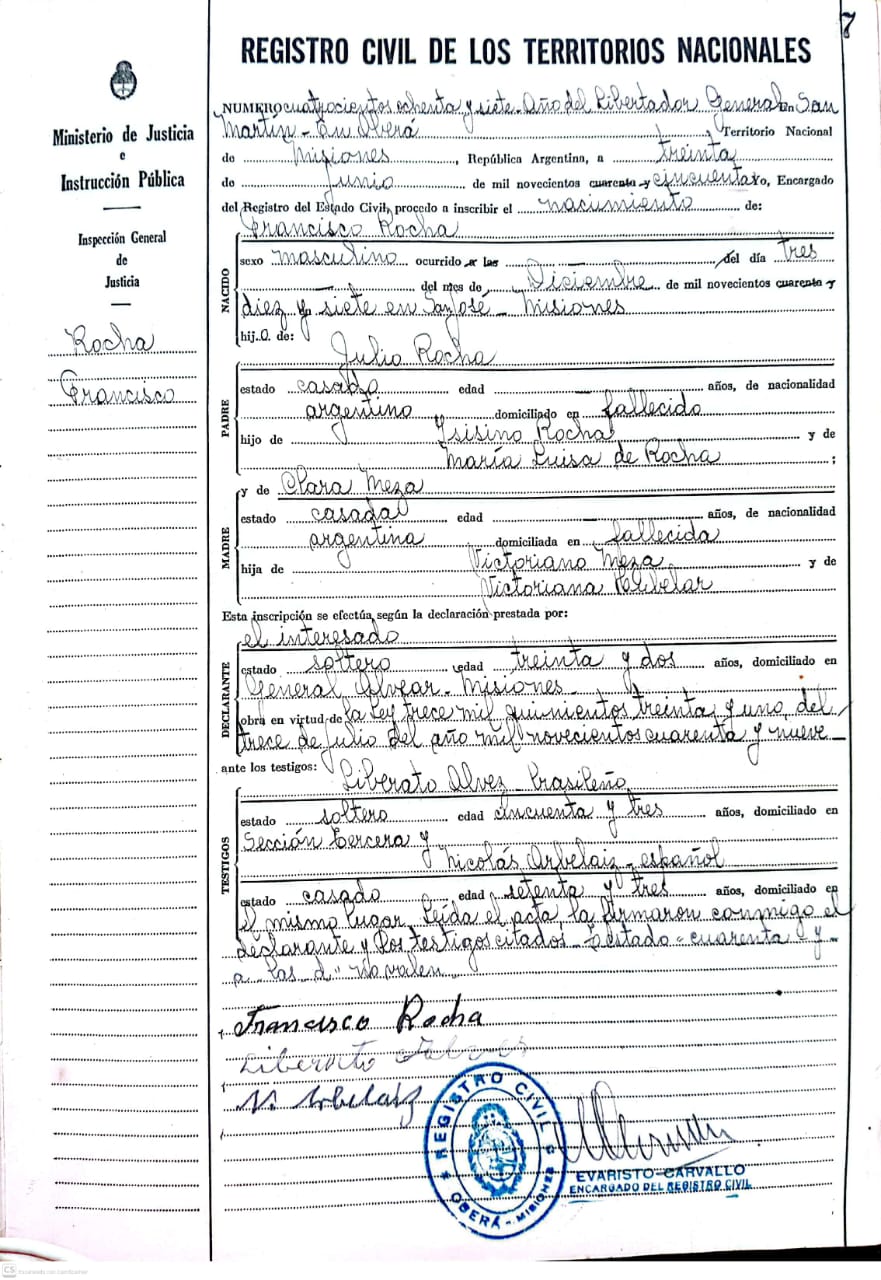 7
REGISTRO CIVIL DE LOS TERRITORIOS NACIONALES
Ministerio de Justicia
e
Instrucción Pública
Inspección General
de
Justicia
Rocha
Francisco
NUMERO cuatrocientos ochenta y siete - Año del Libertador General En San
Martín - En Oberá, Territorio Nacional
de Misiones, República Argentina, a treinta
de junio de mil novecientos cuarenta y cincuenta yo, Encargado
del Registro del Estado Civil, procedo a inscribir el nacimiento de:
NACIDO
Francisco Rocha
sexo masculino ocurrido a las del día tres
del mes de Diciembre de mil novecientos cuarenta y
diez y siete en San José - Misiones
hij.o. de:
PADRE
Julio Rocha
estado casado edad años, de nacionalidad
argentino domiciliado en fallecido
hijo de Isisino Rocha y de
María Luisa de Rocha ;
MADRE
y de Clara Meza
estado casada edad años, de nacionalidad
argentina domiciliada en fallecida
hija de Victoriano Meza y de
Victoriana
Esta inscripción se efectúa según la declaración prestada por:
DECLARANTE
el interesado
estado soltero edad treinta y dos años, domiciliado en
General Alvear - Misiones -
obra en virtud de la Ley trece mil quinientos treinta y uno del
trece de julio del año mil novecientos cuarenta y nueve -
ante los testigos:
TESTIGOS
Liberato Alvez - brasileño
estado soltero edad cincuenta y tres años, domiciliado en
Sección tercera y
Nicolás Arbelaiz - español
estado casado edad setenta y tres años, domiciliado en
el mismo lugar. Leída el acta la firmaron conmigo el
declarante y los testigos citados - Testado = cuarenta y -
a las d" no valen
Francisco Rocha
Liberato
N. Arbelaiz
REGISTRO CIVIL
OBERÁ - MISIONES
EVARISTO CARVALLO
ENCARGADO DEL REGISTRO CIVIL
CS Escaneado con CamScanner